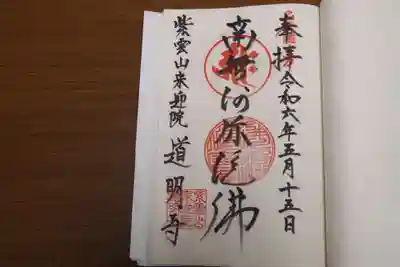 奉拝 令和六年五月十五日
南無阿弥陀佛
紫雲山来迎院 道明寺